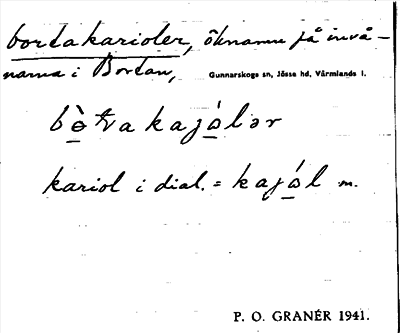 bortakarioler, öknamn på invå-
narna i Bortan, Gunnarskogs sn, Jösse hd, Värmlands l.
kajó̲lər
kariol i dial. = kajó̲l m.
P. O. GRANÉR 1941.